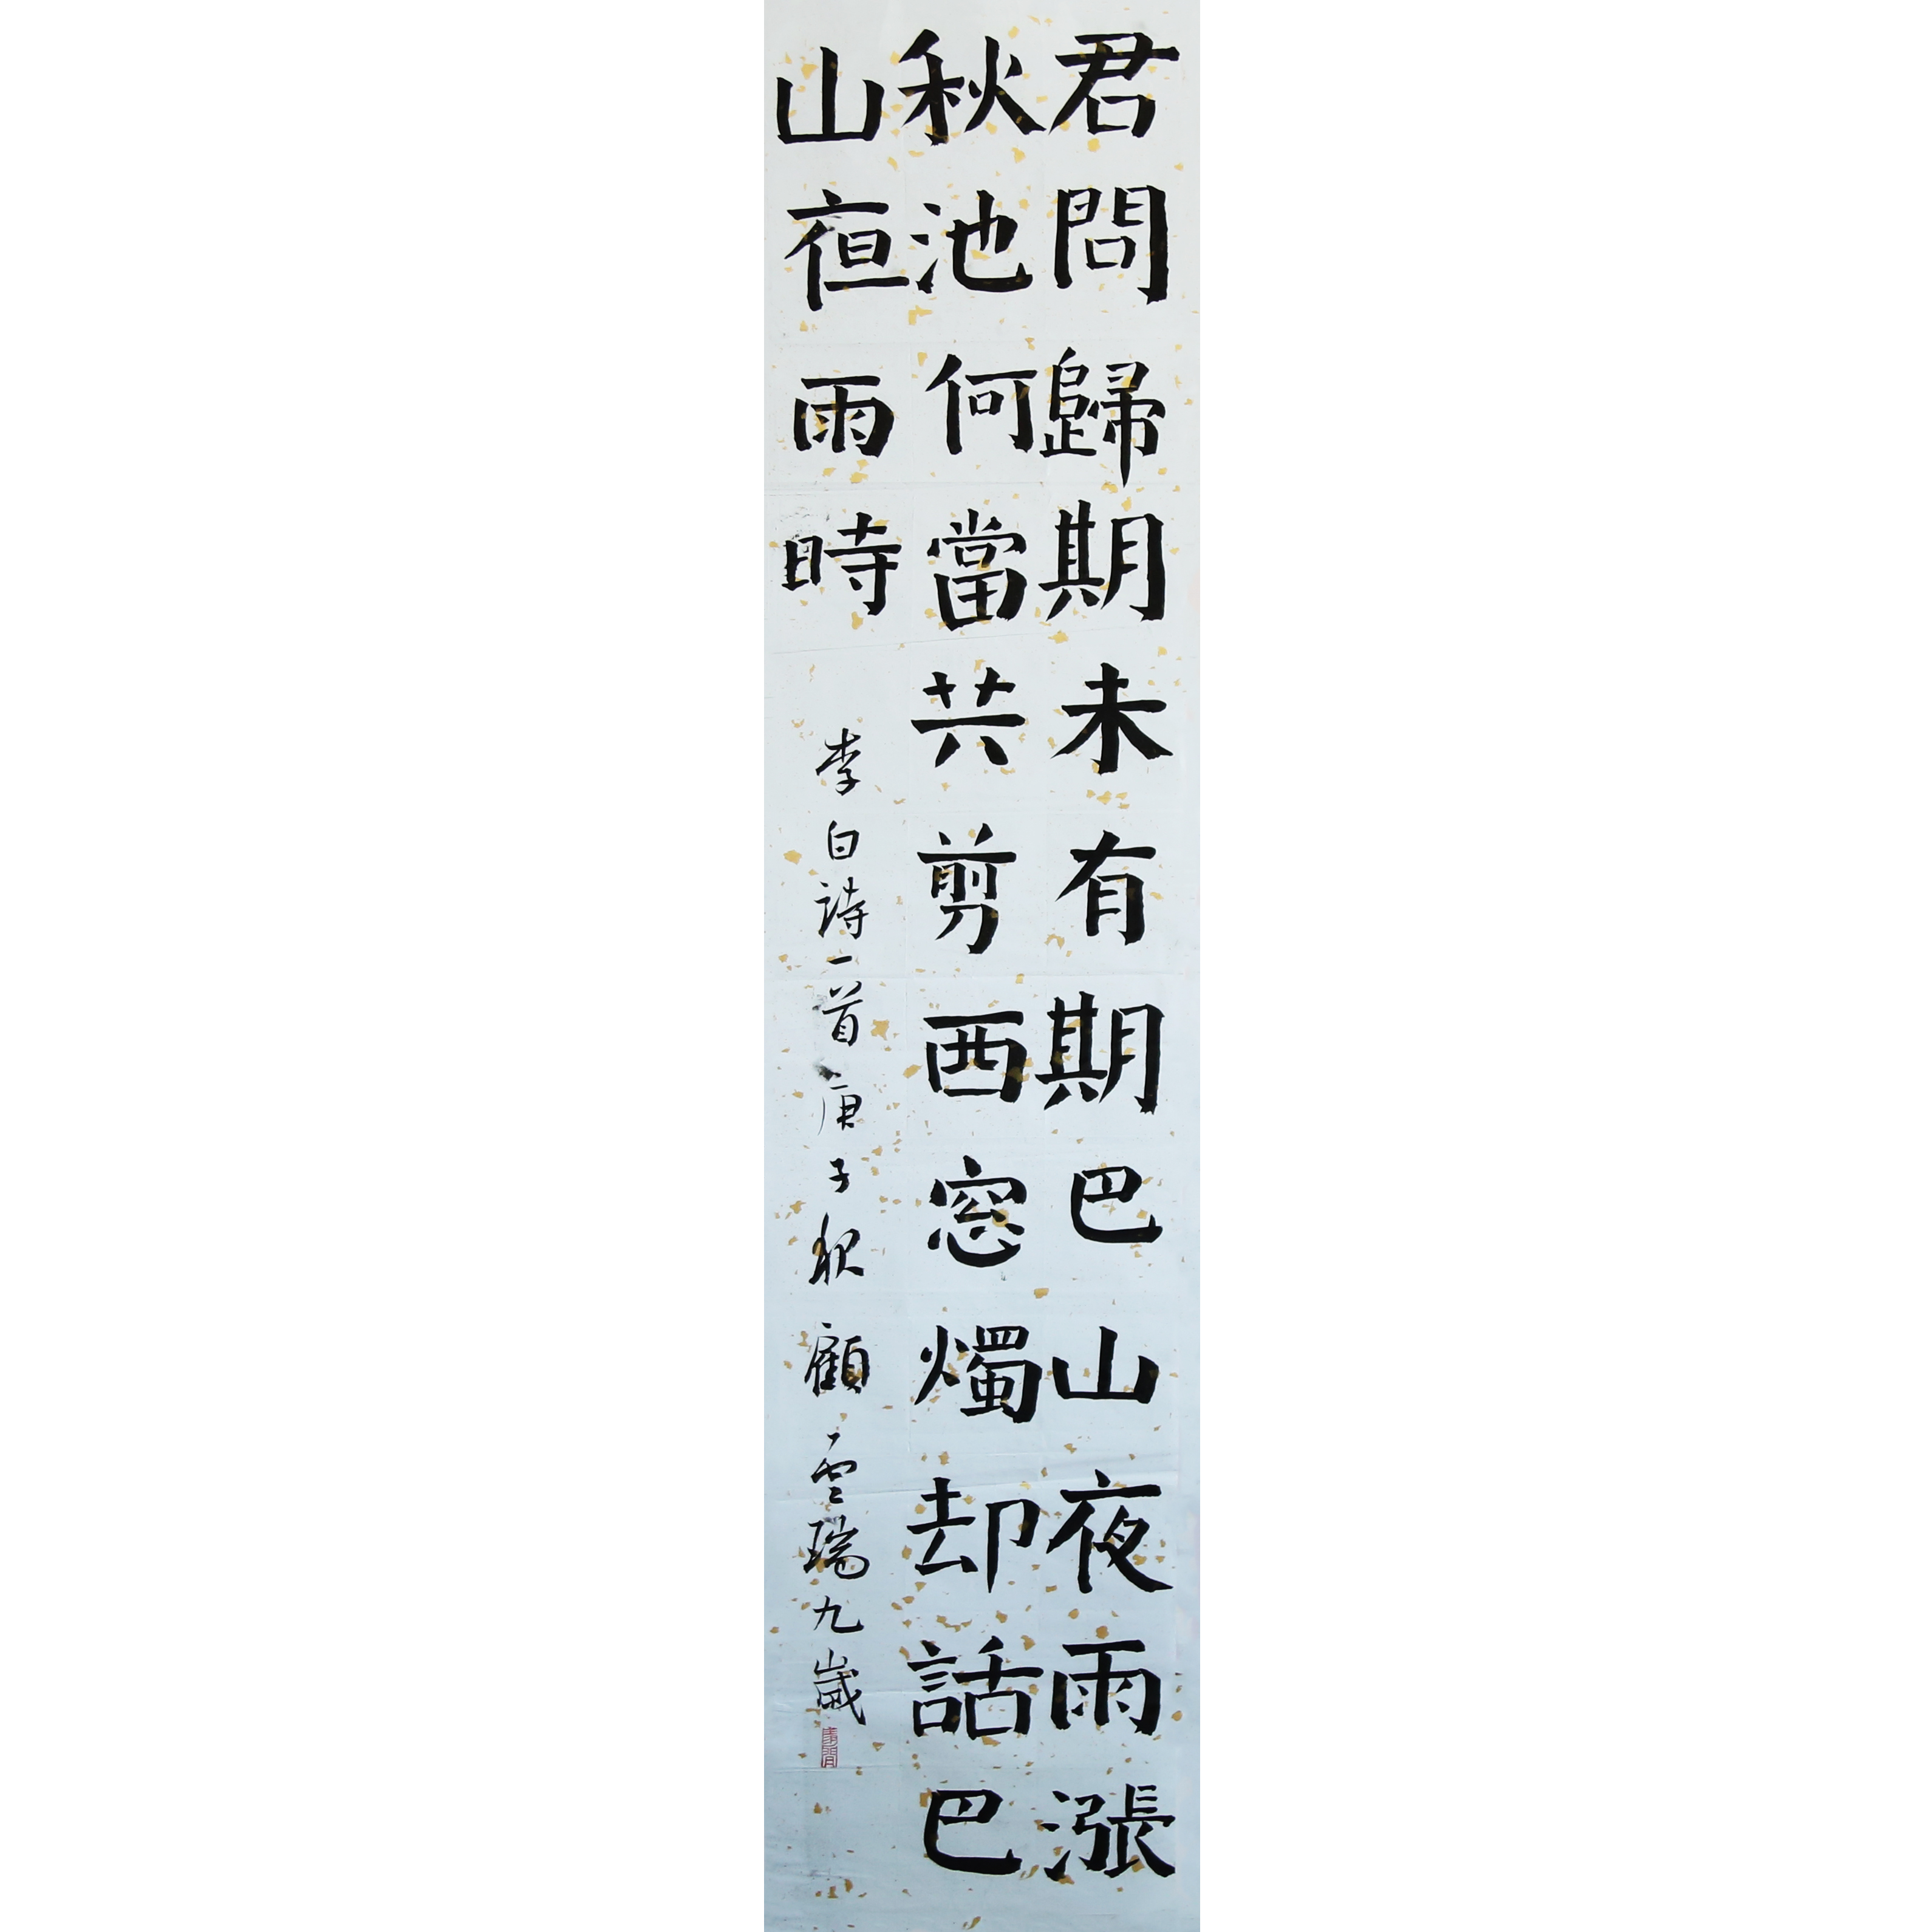 君問歸期未有期巴山夜雨漲
秋池何當共剪西窓燭却話巴
山夜雨時
李白詩一首庚子秋顧雲瑞九歲